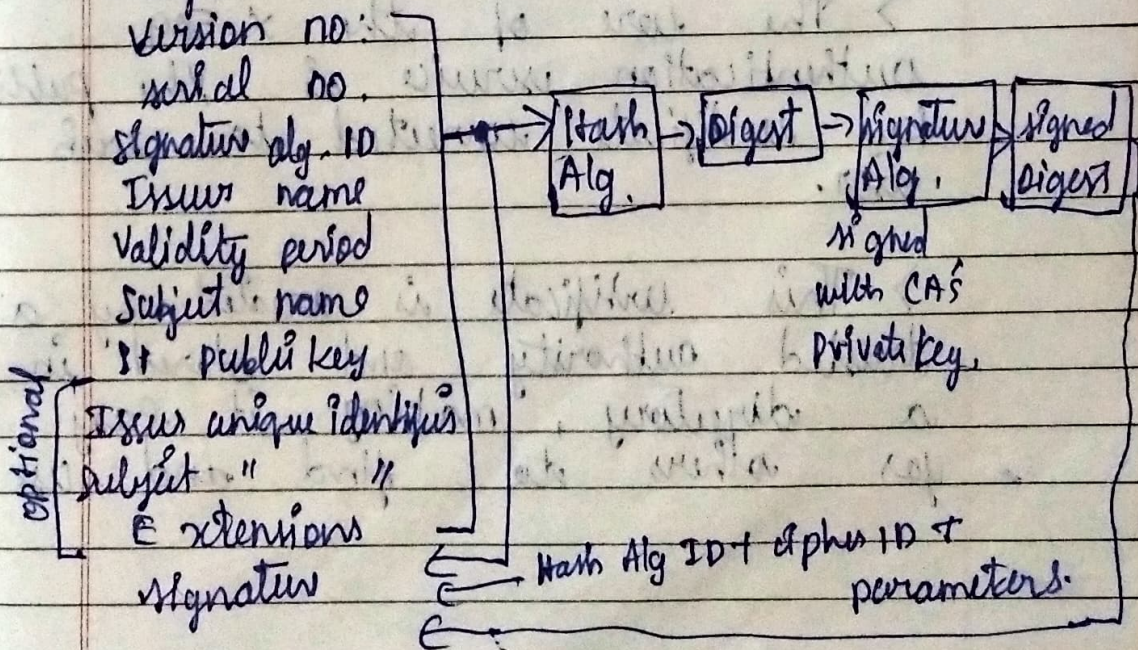 Version no:
serial no.
Signature alg. ID
Issuer name
Validity period
Subject name
" Public key
optional
Issuer unique identifiers
Subject " "
Extensions
Signature
Hash
Alg.
Digest
signature
Alg.
signed
with CA's
Private key.
signed
Digest
Hash Alg ID + cipher ID +
parameters.